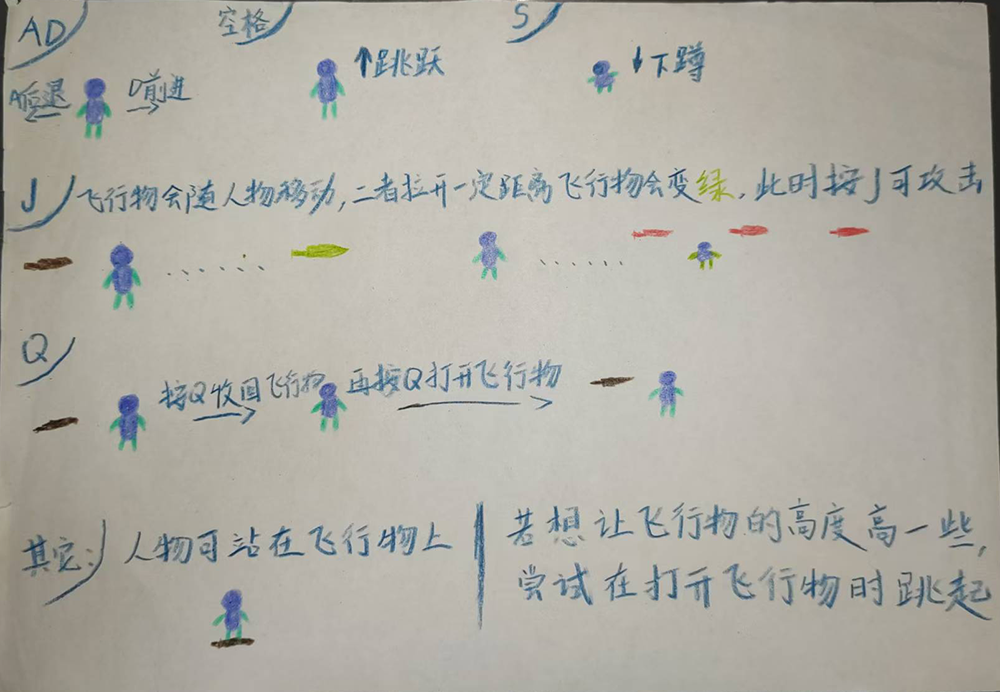 AD 空格 S
A后退 D前进 ↑跳跃 ↓下蹲
J 飞行物会随人物移动,二者拉开一定距离飞行物会变绿,此时按J可攻击
Q
按Q收回飞行物 再按Q打开飞行物
其它:人物可站在飞行物上
若想让飞行物的高度高一些,
尝试在打开飞行物时跳起